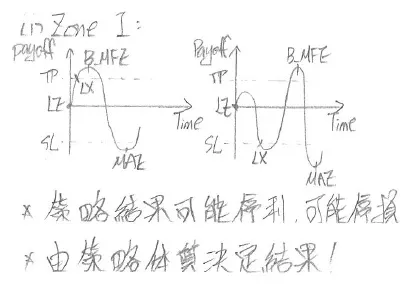 (1) Zone I:
Payoff
B_MFE
TP
LX
LZ
Time
SL
MAE
Payoff
B_MFE
TP
LZ
Time
SL
LX
MAE
* 策略結果可能停利,可能停損
* 由策略体質決定結果!